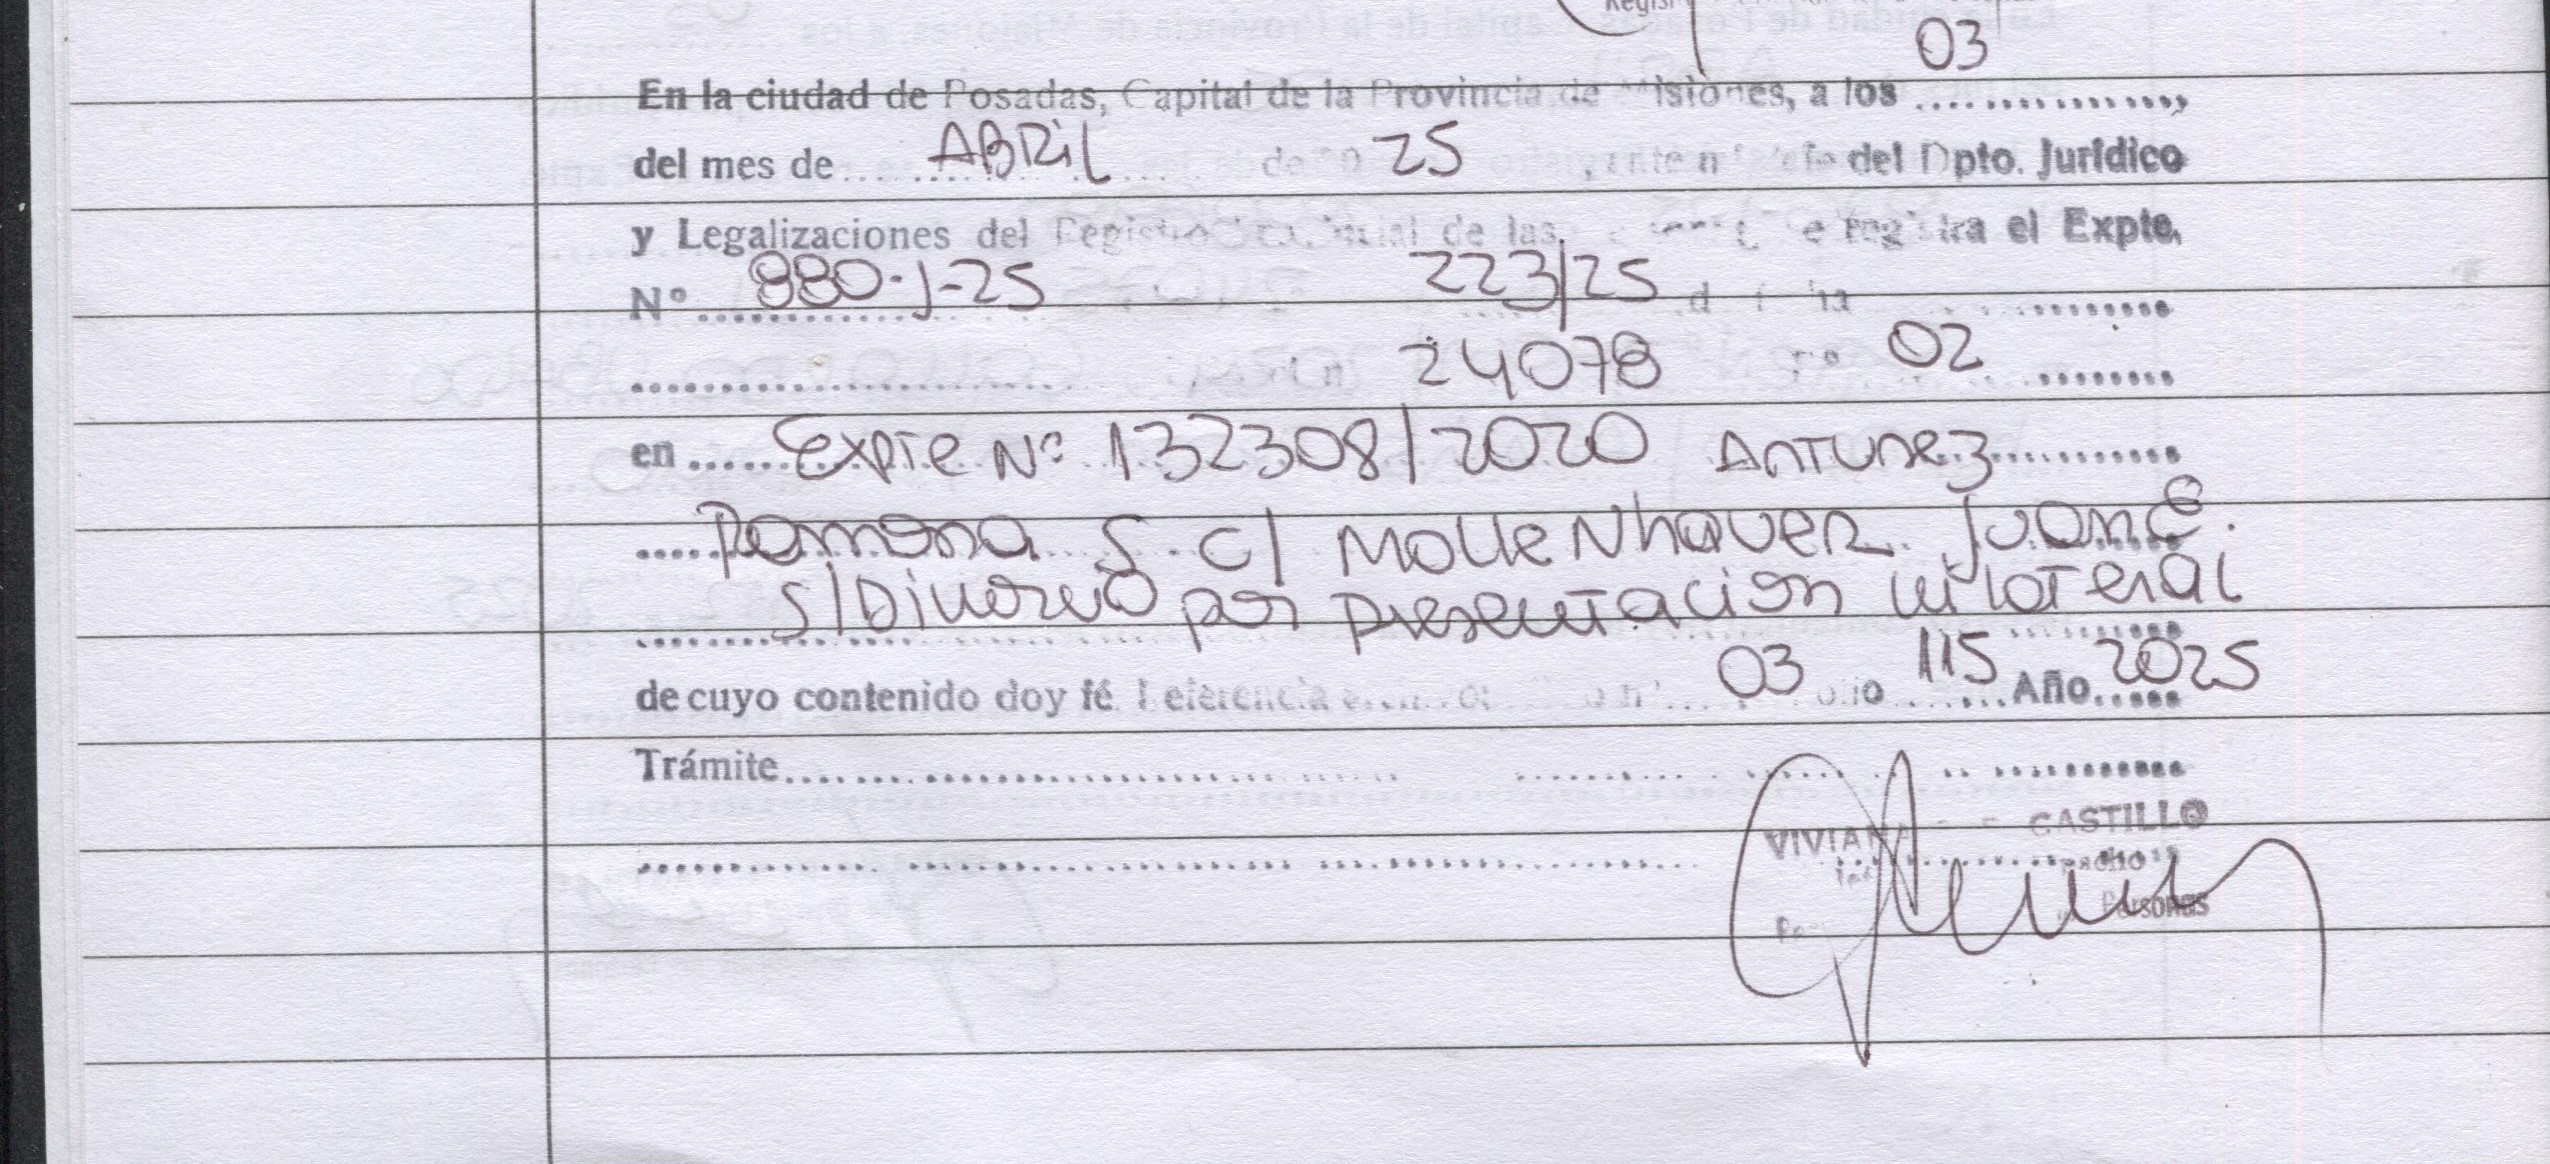 Regist
03
En la ciudad de Posadas, Capital de la Provincia de Misiones, a los ................,
del mes de ABRiL de 25 , ante m del Dpto. Jurídico
y Legalizaciones del Registro Provincial de las registra el Expte.
Nº 880-J-25 223/25
24078 02
en Expte Nº 132308/2020 Antunez
Ramona S. c/ Mollenhauer Juan C.
s/Divorcio por presentacion unilateral
de cuyo contenido doy fé. Referencia 03 115 Año 2025
Trámite
VIVIANA CASTILLO
Personas